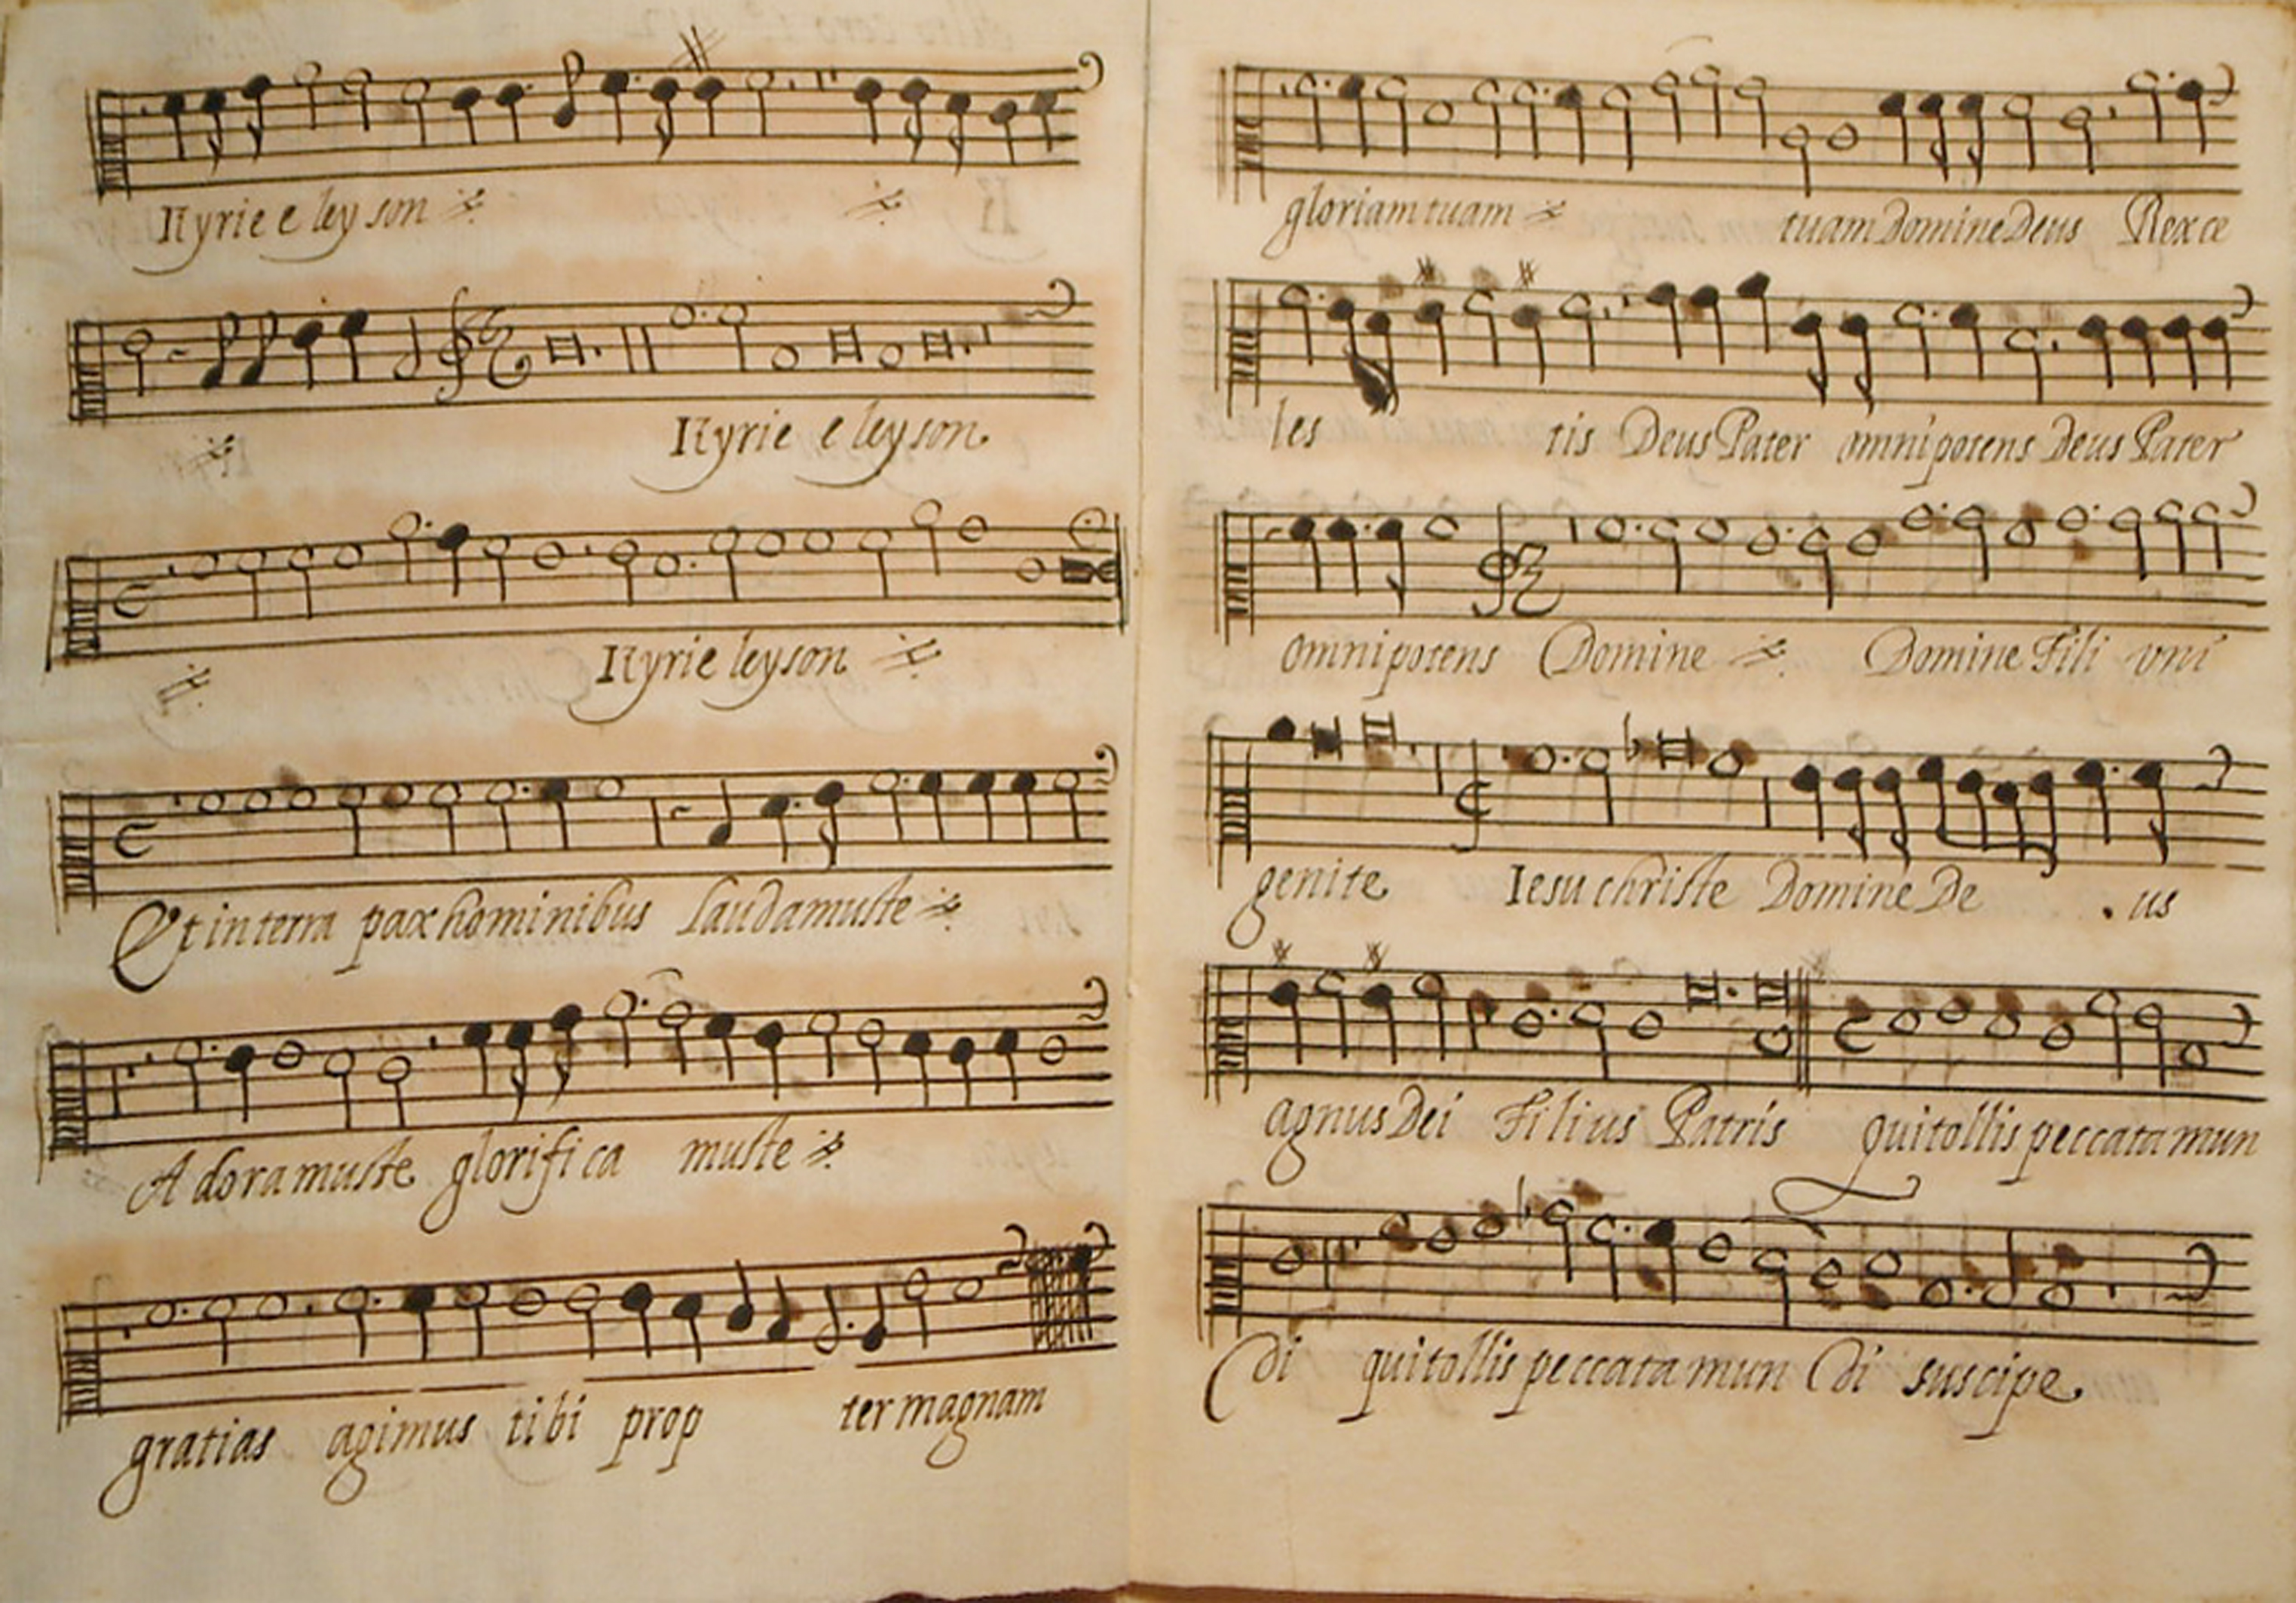 Kyrie e ley son
Kyrie e ley son
Kyrie ley son
Et in terra pax hominibus laudamuste
A doramuste glorifi ca muste
gratias agimus tibi prop ter magnam
gloriam tuam tuam Domine Deus Rex ce
les tis Deus Pater omnipotens Deus Pater
omnipotens Domine Domine Fili vni
genite Iesu christe Domine De . us
agnus Dei Filius Patris qui tollis peccata mun
di qui tollis peccata mun di suscipe